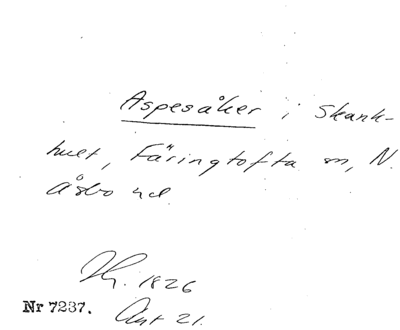 Aspesåker i Skank-
hult, Färingtofta sn, N.
Åsbo hd
1826
Nr 7237. Akt 21.